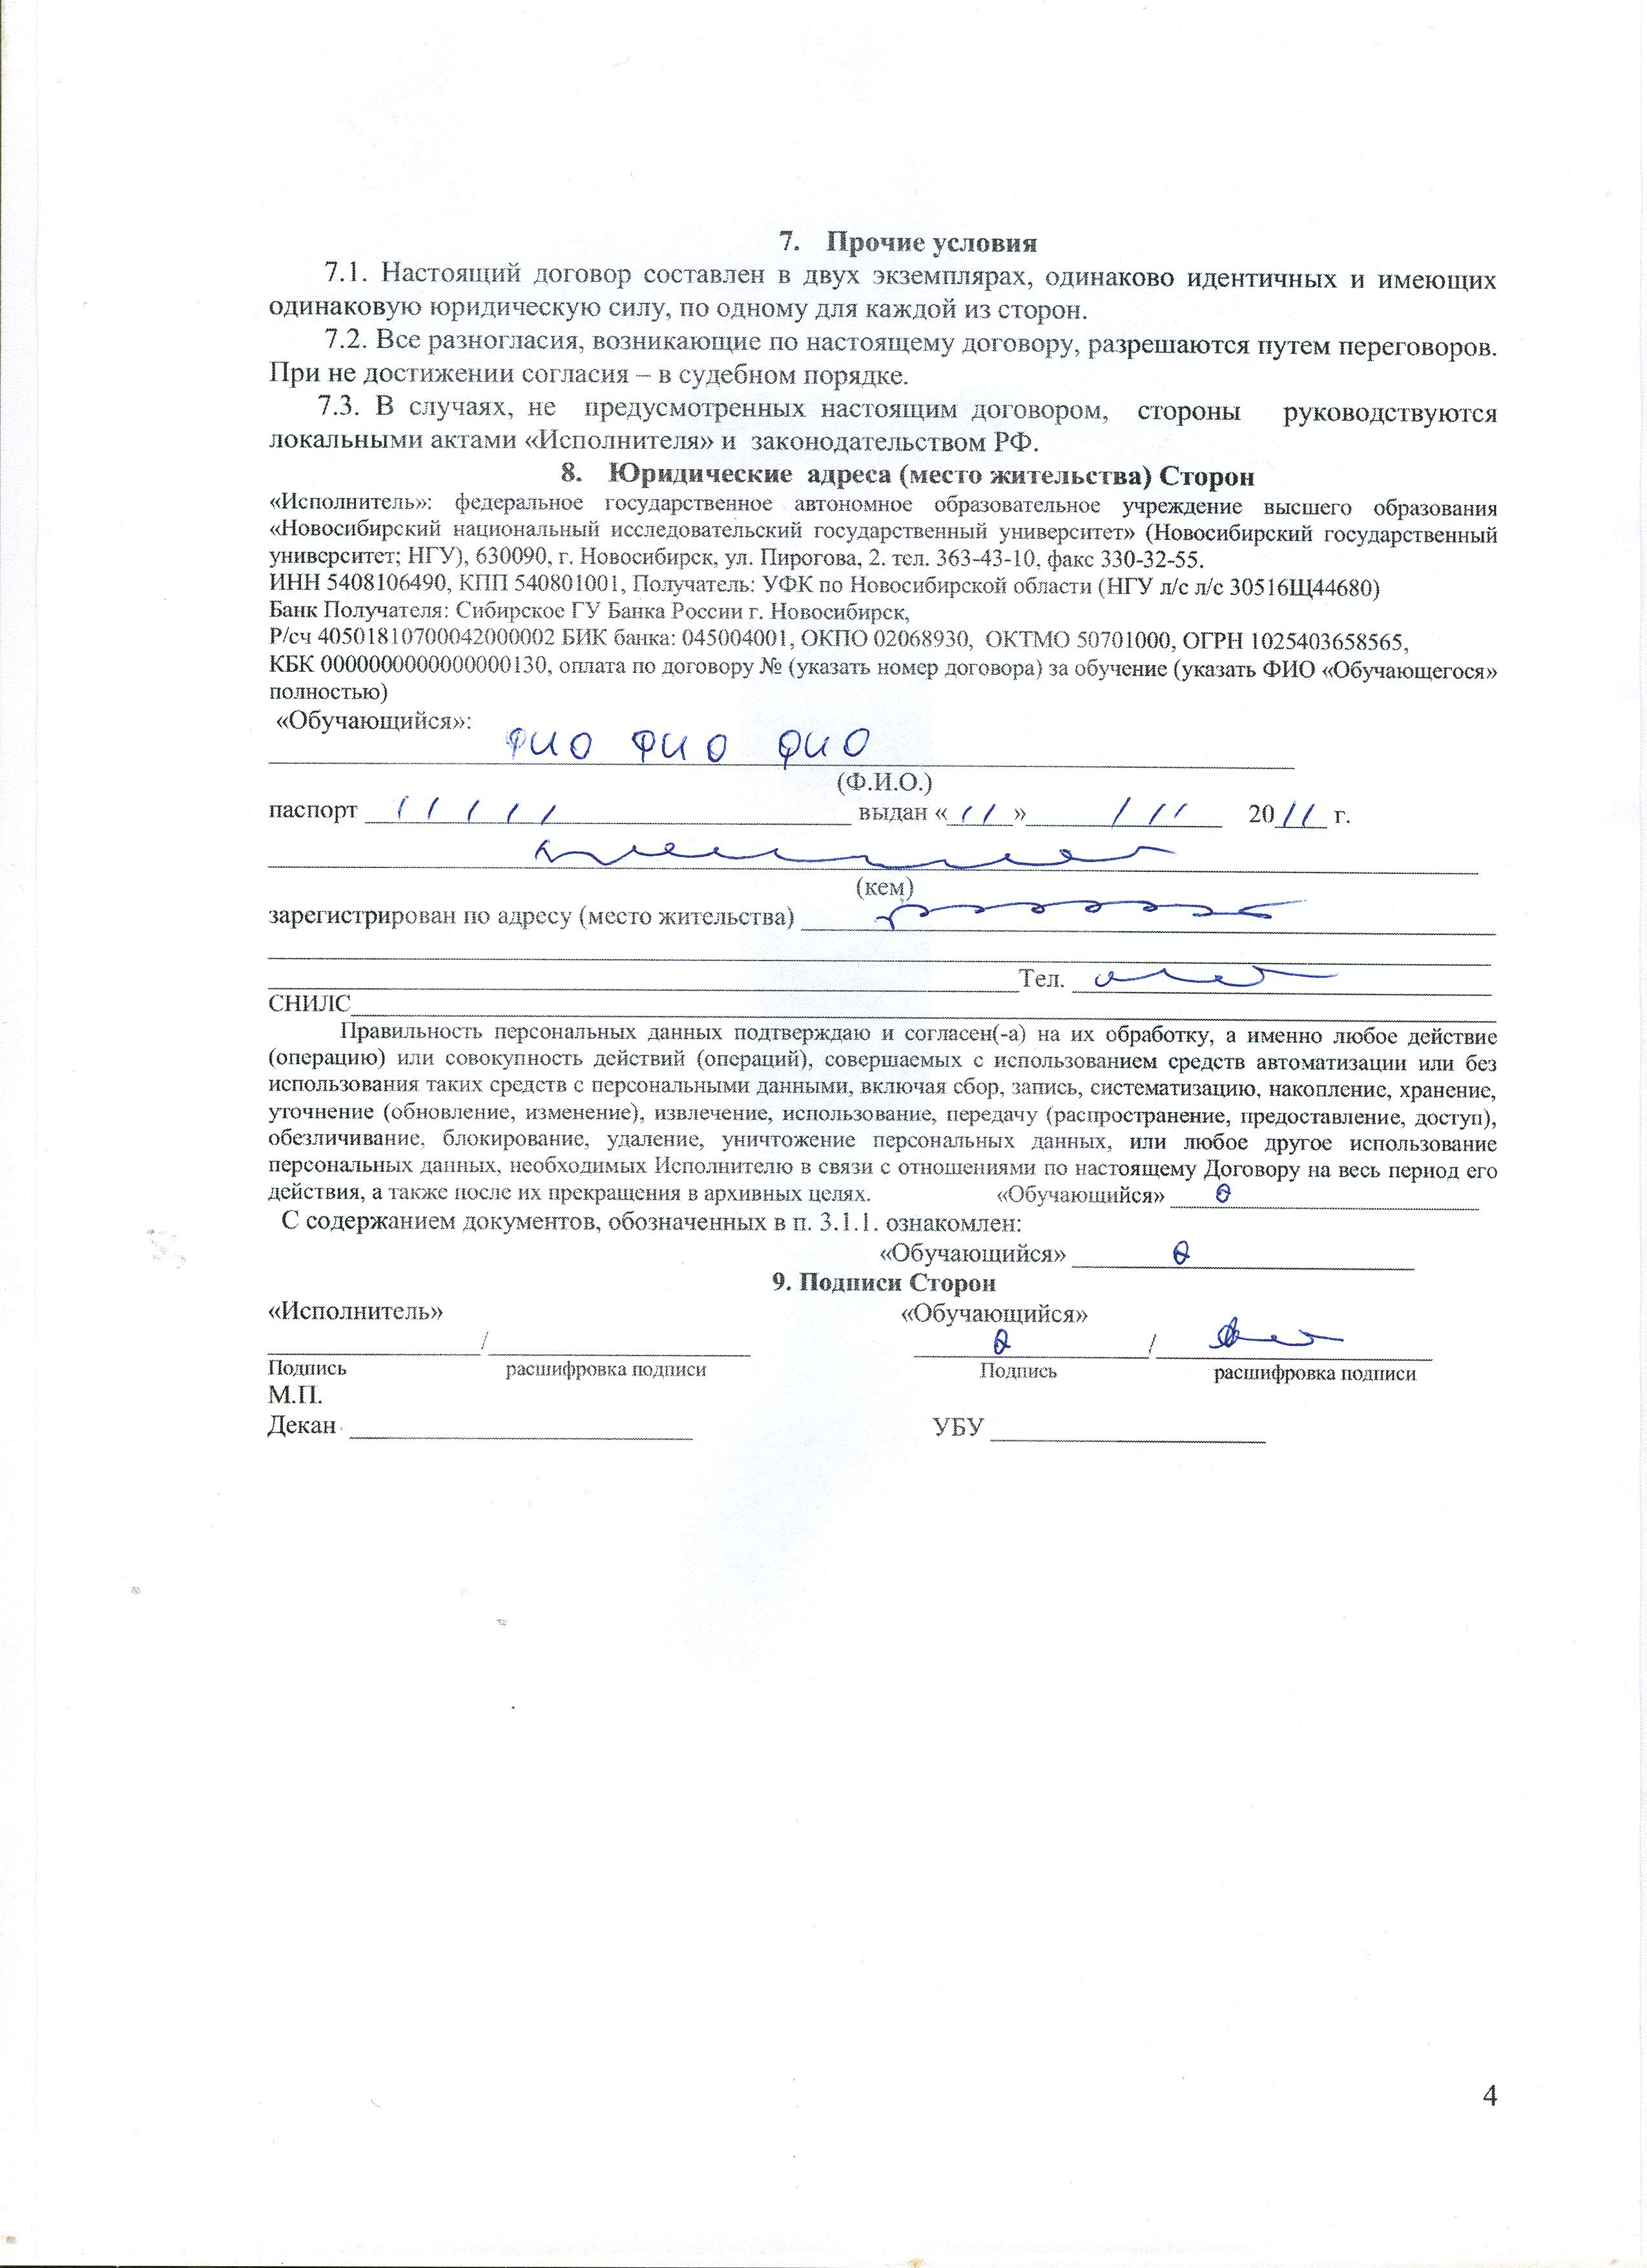 7. Прочие условия
7.1. Настоящий договор составлен в двух экземплярах, одинаково идентичных и имеющих
одинаковую юридическую силу, по одному для каждой из сторон.
7.2. Все разногласия, возникающие по настоящему договору, разрешаются путем переговоров.
При не достижении согласия – в судебном порядке.
7.3. В случаях, не предусмотренных настоящим договором, стороны руководствуются
локальными актами «Исполнителя» и законодательством РФ.
8. Юридические адреса (место жительства) Сторон
«Исполнитель»: федеральное государственное автономное образовательное учреждение высшего образования
«Новосибирский национальный исследовательский государственный университет» (Новосибирский государственный
университет; НГУ), 630090, г. Новосибирск, ул. Пирогова, 2. тел. 363-43-10, факс 330-32-55.
ИНН 5408106490, КПП 540801001, Получатель: УФК по Новосибирской области (НГУ л/с л/с 30516Щ44680)
Банк Получателя: Сибирское ГУ Банка России г. Новосибирск,
Р/сч 40501810700042000002 БИК банка: 045004001, ОКПО 02068930, ОКТМО 50701000, ОГРН 1025403658565,
КБК 00000000000000000130, оплата по договору № (указать номер договора) за обучение (указать ФИО «Обучающегося»
полностью)
«Обучающийся»:
ФИО ФИО ФИО
(Ф.И.О.)
паспорт 1 1 1 1 1 выдан «11» 111 2011 г.
(кем)
зарегистрирован по адресу (место жительства)
Тел.
СНИЛС
Правильность персональных данных подтверждаю и согласен(-а) на их обработку, а именно любое действие
(операцию) или совокупность действий (операций), совершаемых с использованием средств автоматизации или без
использования таких средств с персональными данными, включая сбор, запись, систематизацию, накопление, хранение,
уточнение (обновление, изменение), извлечение, использование, передачу (распространение, предоставление, доступ),
обезличивание, блокирование, удаление, уничтожение персональных данных, или любое другое использование
персональных данных, необходимых Исполнителю в связи с отношениями по настоящему Договору на весь период его
действия, а также после их прекращения в архивных целях. «Обучающийся»
С содержанием документов, обозначенных в п. 3.1.1. ознакомлен:
«Обучающийся»
9. Подписи Сторон
«Исполнитель» «Обучающийся»
/ /
Подпись расшифровка подписи Подпись расшифровка подписи
М.П.
Декан УБУ
4